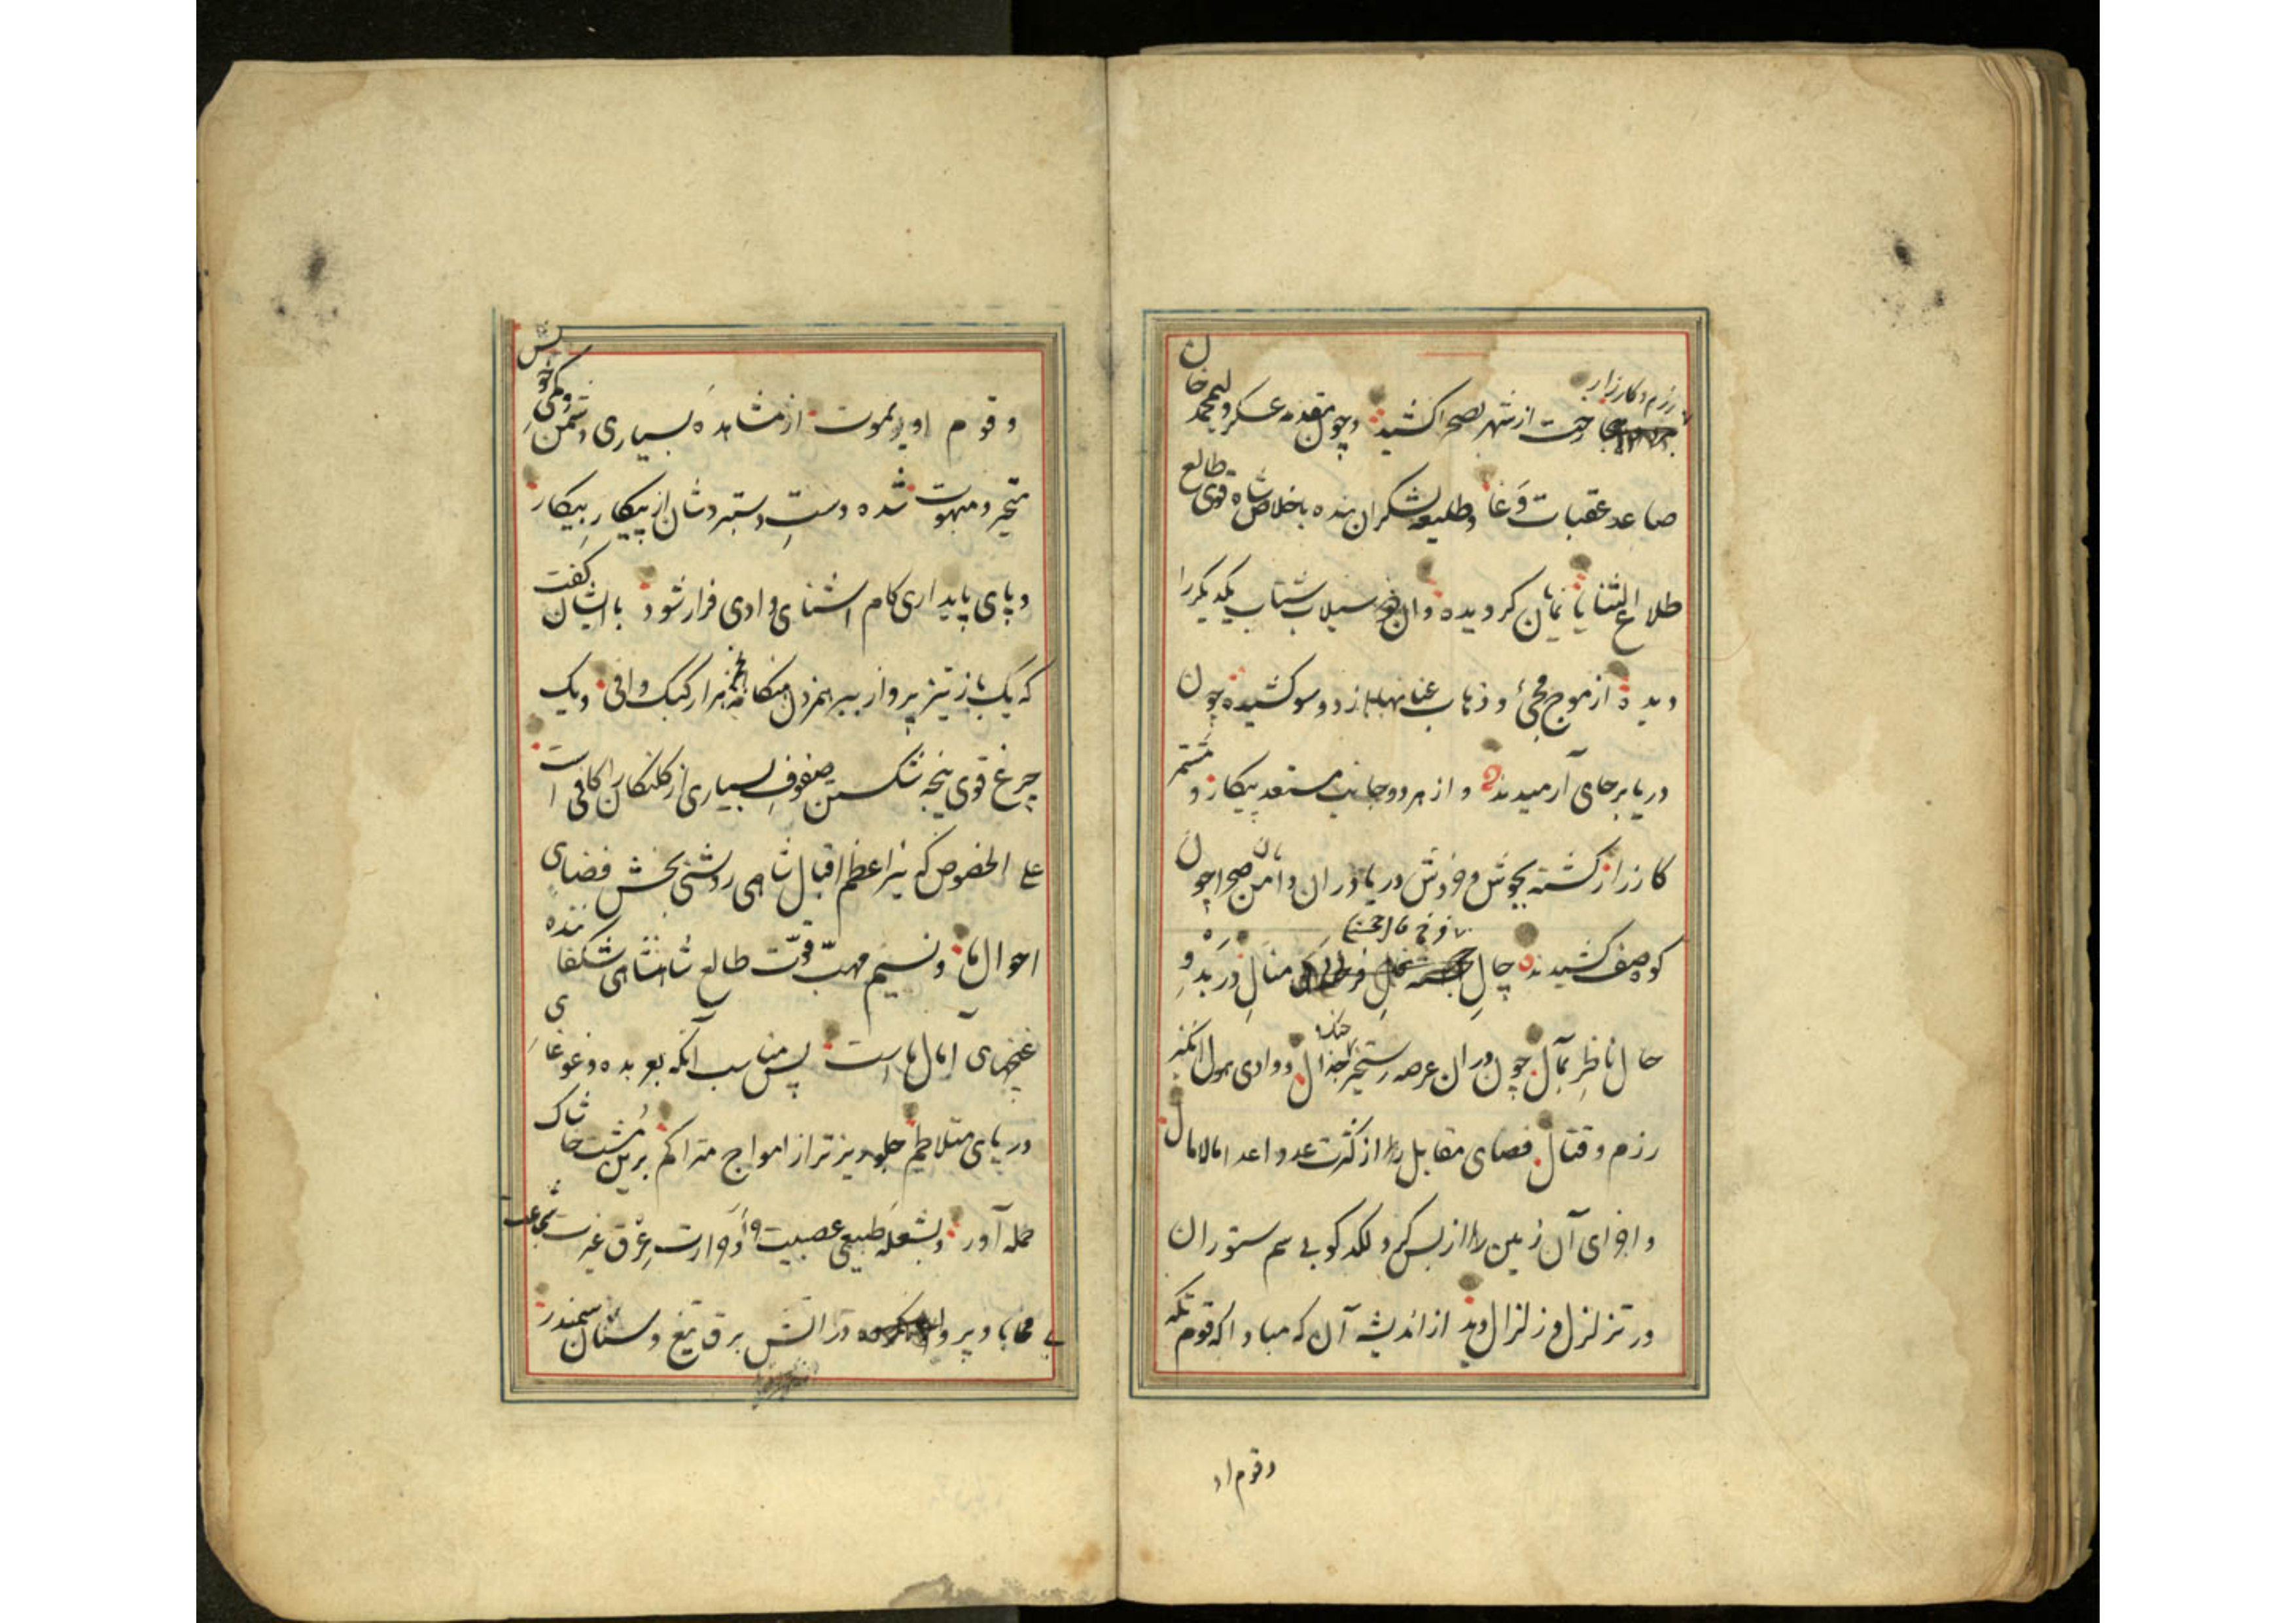 رزم و کارزار
رخت از شهر بصحرا کشید و چون مقدمه عسکر ولیمحمد خان
صاعد عقبات وغا و طلیعه لشکر ان بنده باخلاص شاه قوی طالع
طلاع الثنایا نمایان کردیده و ان دو سیلاب شتاب یکدیکر را
دیده از موج مجئ و ذهاب عنانها باز دو سو کشیده چون
دریا بر جای آرمیدند و از هر دو جانب مستعد پیکار و مشتمر
کارزار کشته بجوش و خروش دریا دران دامن صحرا چون
کوه صف کشیدند چال مثال در بدو
حال ناظر بمآل چون دران عرصه رستخیز جدال و وادی هول انکیز
جنک
رزم و قتال فضای مقابل را از کثرت عدد اعدا مالامال
و اجزای آن زمین را از بس کرد لکد کوبی سم ستوران
در تزلزل و زلزال دید از اندیشه آن که مبادا که قوم تکه
وقوم او
وقوم اویربموت از مشاهده بسیاری دشمن و کمی خویش
متحیر و مبهوت شده دست دستبردشان از پیکار بیکار
و پای پایداری کام اشنای وادی فرار شود با ایشان کفت
که یک باز تیز پرواز بر همزدن هنکامه هزار کبک وافی و یک
چرغ قوی پنجه شکستن صفوف بسیاری از کلنکان را کافی است
علی الخصوص که نیر اعظم اقبال شاهی روشنی بخش فضای
احوال ما و نسیم مهب قوت طالع شاهنشاهی شکفاننده
غنچهای آمال ماست پس مناسب آنکه بعربده و غوغای
دریای متلاطم جلوریزتر از امواج متراکم برین مشت خاشاک
حمله آور و بشعله طبیعی عصبیت و حرارت عرق غیرت شجاعت
بی محابا و پروا در اتش برق تیغ و سنان سمندر